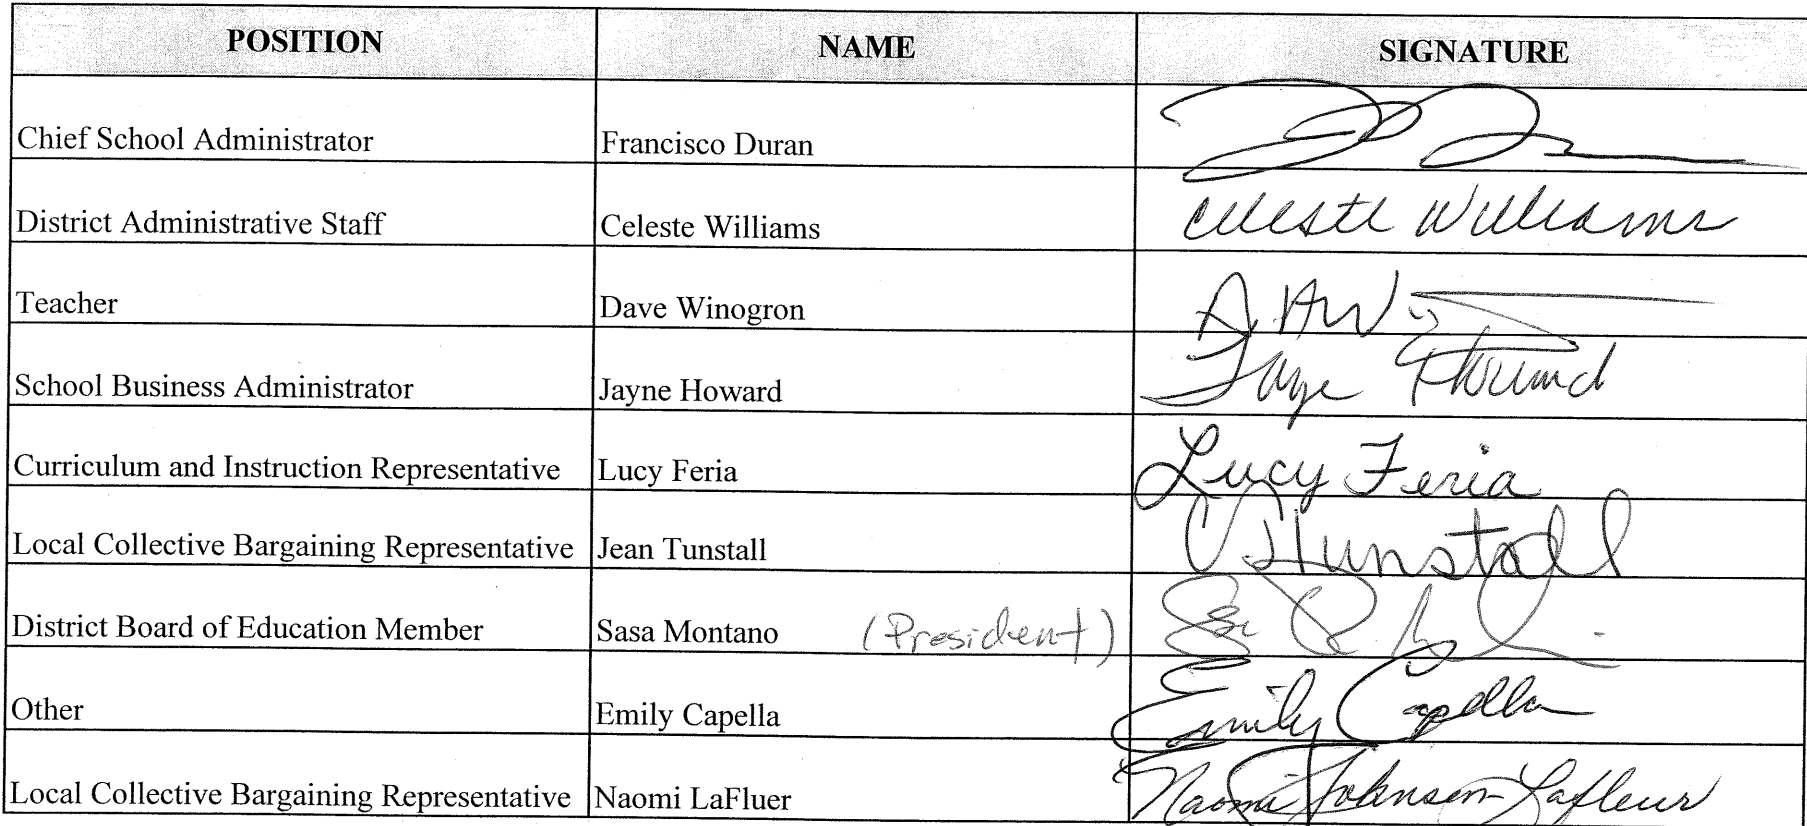 POSITION NAME SIGNATURE
Chief School Administrator Francisco Duran
District Administrative Staff Celeste Williams Celeste Williams
Teacher Dave Winogron
School Business Administrator Jayne Howard Jayne Howard
Curriculum and Instruction Representative Lucy Feria Lucy Feria
Local Collective Bargaining Representative Jean Tunstall J Tunstall
District Board of Education Member Sasa Montano (President)
Other Emily Capella Emily Capella
Local Collective Bargaining Representative Naomi LaFluer Naomi Johnson-Lafleur